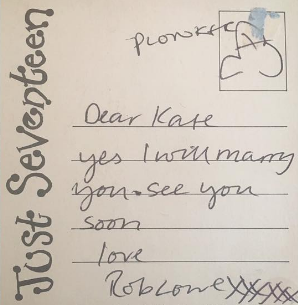 Just Seventeen
Dear Kate
yes I will marry
you. see you
soon
love
Rob Lowe XXXXX